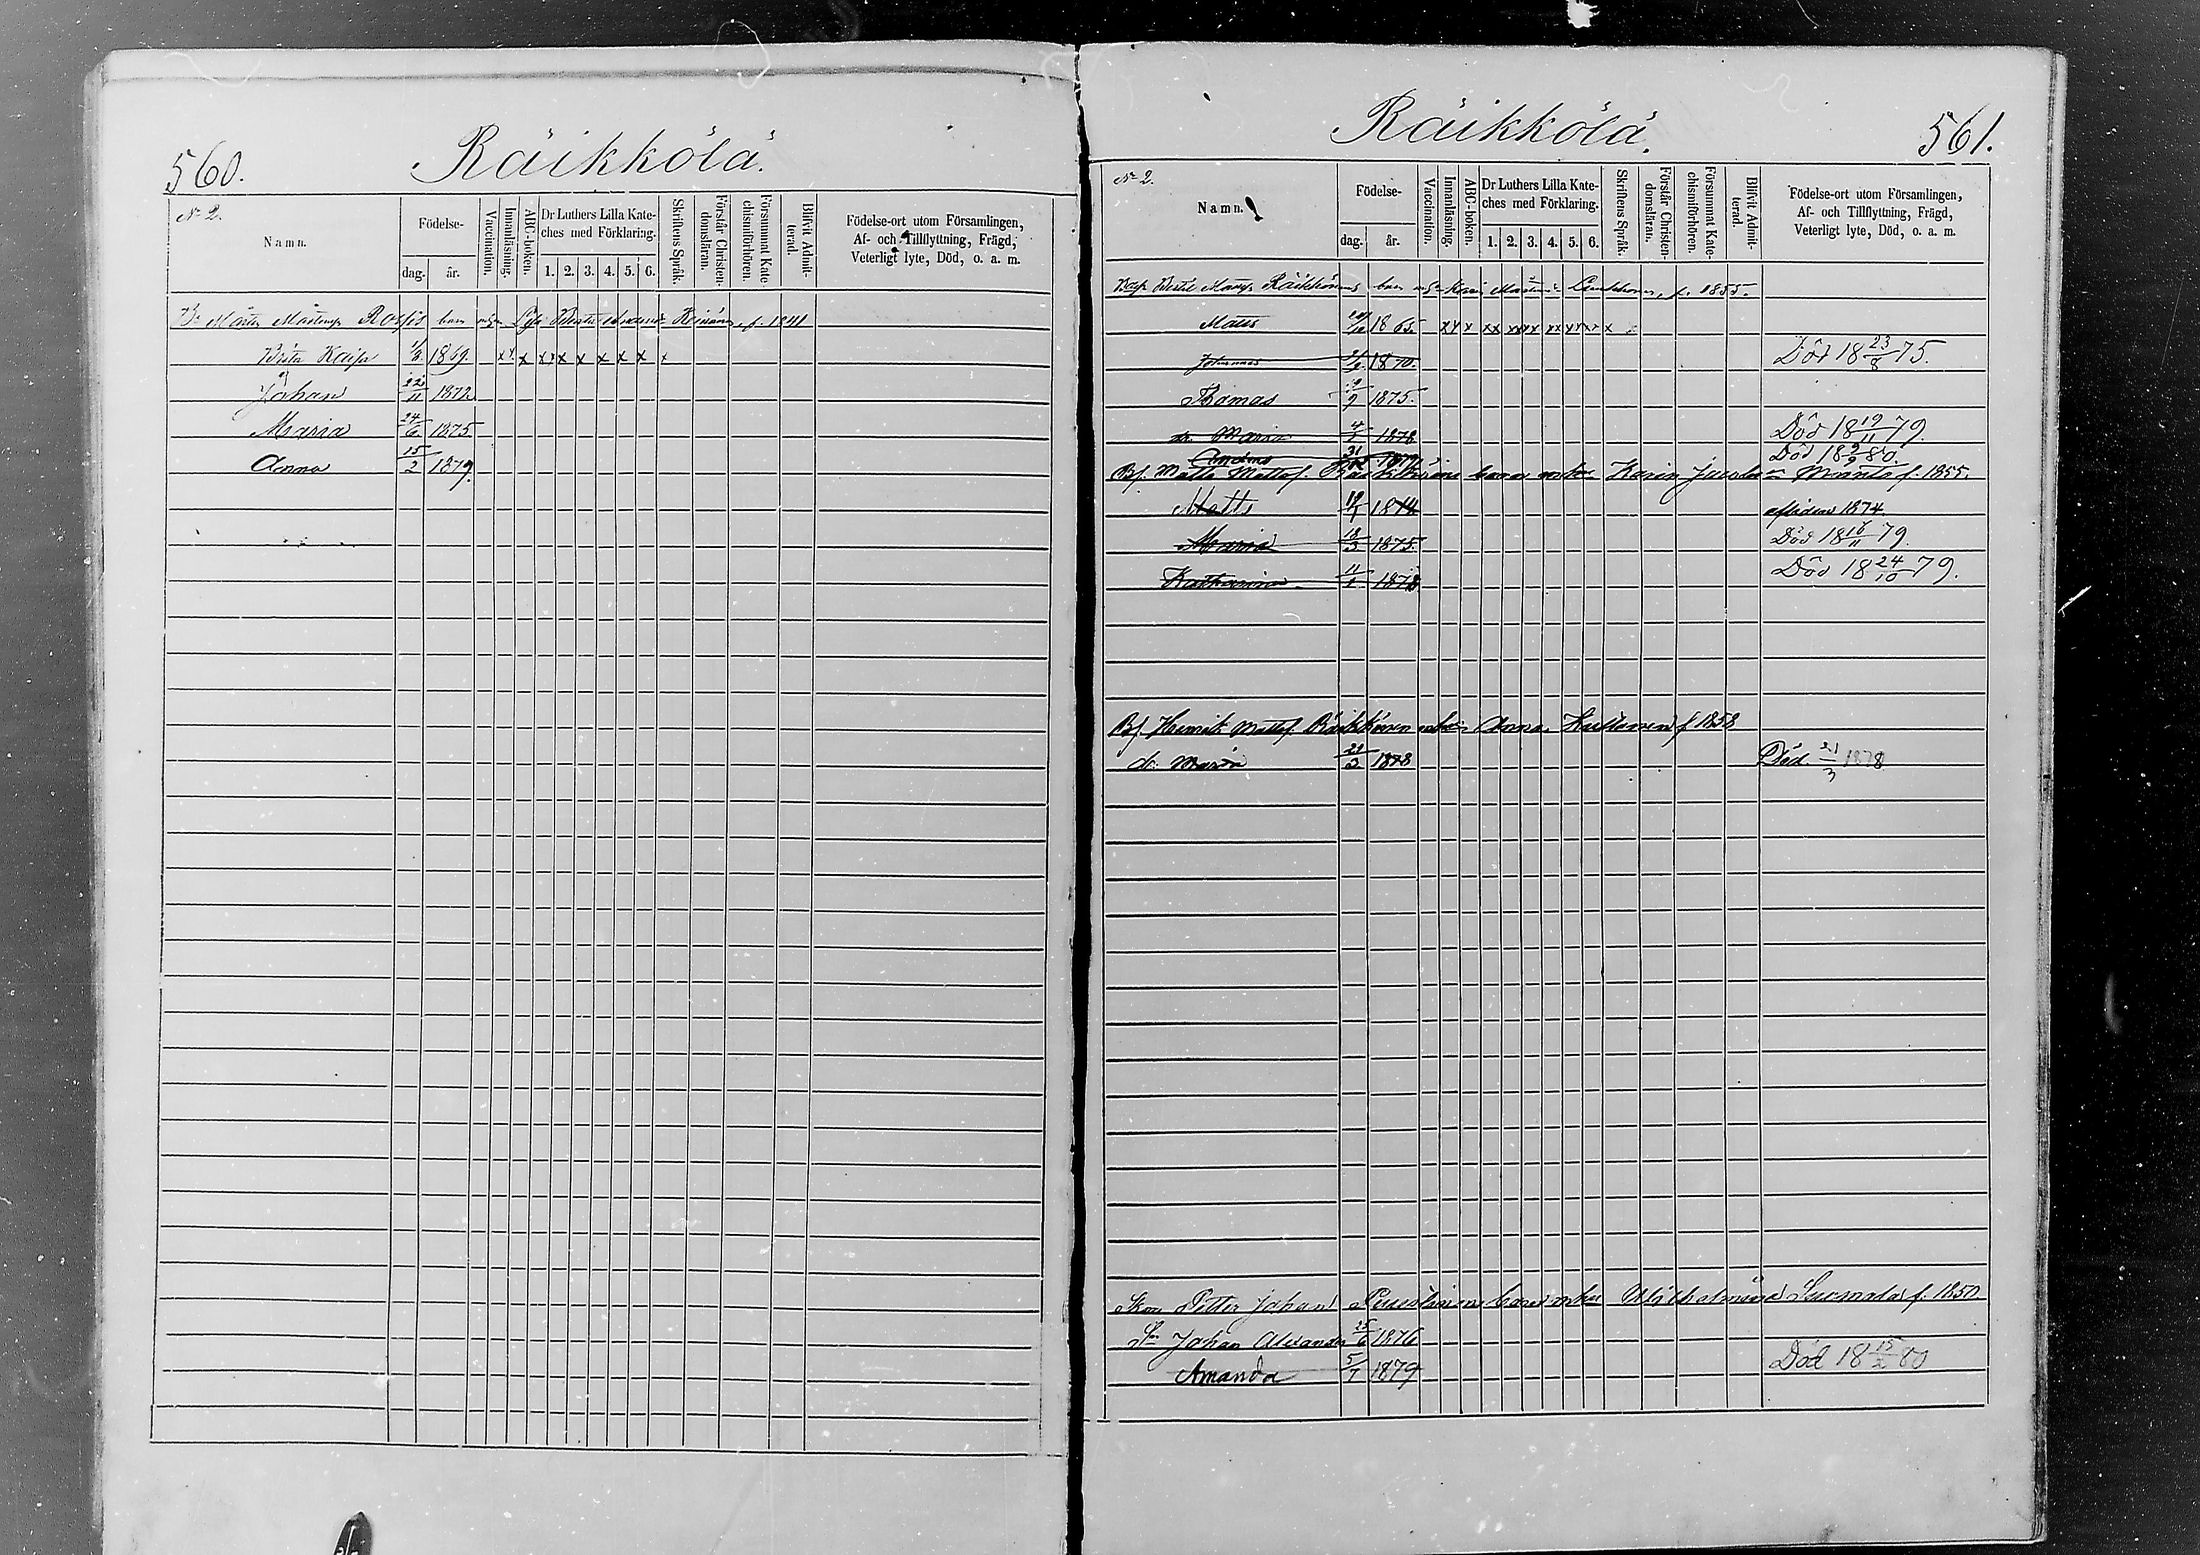 560.
Räikkölä.
No 2.
Namn.
Födelse-
dag.
år.
Vaccination.
Innanläsning.
ABC-boken.
Dr Luthers Lilla Kate-
ches med Förklaring.
1. 2. 3. 4. 5. 6.
Skriftens Språk.
Förstår Christen-
domsläran.
Försummat Kate-
chismiförhören.
Blifvit Admit-
terad.
Födelse-ort utom Församlingen,
Af- och Tillflyttning, Frägd,
Veterligt lyte, Död, o. a. m.
f. 1841
Brita Kaisa 1869. x x x x x x x x x x
Johan 22/11 1872
Maria 24/6 1875
Anna 15/2 1879.
Räikkölä.
561.
No 2.
Namn.
Födelse-
dag.
år.
Vaccination.
Innanläsning.
ABC-boken.
Dr Luthers Lilla Kate-
ches med Förklaring.
1. 2. 3. 4. 5. 6.
Skriftens Språk.
Förstår Christen-
domsläran.
Försummat Kate-
chismiförhören.
Blifvit Admit-
terad.
Födelse-ort utom Församlingen,
Af- och Tillflyttning, Frägd,
Veterligt lyte, Död, o. a. m.
Räikkönens barn f. 1855.
Matts 1865
Johannes 1870. Död 18 23/8 75.
Thomas 1875.
Maria 1878 Död 18 19/11 79.
Andreas Död 18 9/9 80.
Bf. Matts Mattsf. Räikkönens barn Karin f. 1855.
Matts 1874 afliden 1874
Maria 1875. Död 18 16/11 79.
Katharina 1878 Död 18 24/10 79.
Bf. Henrik Mattsf. Räikkönen Anna f. 1858
d. Maria 1878 Död 21/3 1878
Petter Johan barn Suomala f. 1850
Sn Johan Alexander 25/6 1876
Amanda 5/7 1879 Död 18 15/2 80